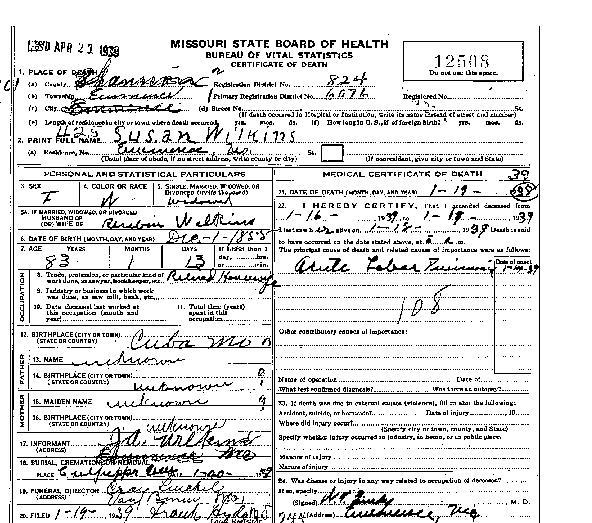 FILED APR 23 1939
MISSOURI STATE BOARD OF HEALTH
BUREAU OF VITAL STATISTICS
CERTIFICATE OF DEATH
12508
Do not use this space.
1. PLACE OF DEATH
(a) County Shannon Registration District No. 824
(b) Township Eminence Primary Registration District No. Registered No.
(c) City (d) Street No. St.
(If death occurred in Hospital or Institution, write its name instead of street and number)
(e) Length of residence in city or town where death occurred yrs. mos. ds. (f) How long in U.S., if of foreign birth? yrs. mos. ds.
2. PRINT FULL NAME 425 Susan Wilkins
(a) Residence, No. Eminence, Mo. St.
(Usual place of abode, if no street address, write county or city) (If nonresident, give city or town and State)
PERSONAL AND STATISTICAL PARTICULARS
3. SEX F
4. COLOR OR RACE W
5. SINGLE, MARRIED, WIDOWED, OR DIVORCED (write the word) Widowed
5A. IF MARRIED, WIDOWED, OR DIVORCED
HUSBAND OF
(OR) WIFE OF Wilkins
6. DATE OF BIRTH (MONTH, DAY, AND YEAR) Dec-1-1855
7. AGE YEARS MONTHS DAYS If LESS than 1
83 1 13 day, hrs.
or min.
OCCUPATION
8. Trade, profession, or particular kind of
work done, as sawyer, bookkeeper, etc. Retired Housewife
9. Industry or business in which
work was done, as saw mill, bank, etc.
10. Date deceased last worked at
this occupation (month and
year)
11. Total time (years)
spent in this
occupation
12. BIRTHPLACE (CITY OR TOWN) Cuba Mo
(STATE OR COUNTRY)
FATHER
13. NAME unknown
14. BIRTHPLACE (CITY OR TOWN)
(STATE OR COUNTRY) unknown
MOTHER
15. MAIDEN NAME unknown
16. BIRTHPLACE (CITY OR TOWN)
(STATE OR COUNTRY) unknown
17. INFORMANT Wilkins
(ADDRESS) Eminence Mo
18. BURIAL, CREMATION, OR REMOVAL
PLACE 1-20- 39
19. FUNERAL DIRECTOR
(ADDRESS)
20. FILED 1-19- 1939
MEDICAL CERTIFICATE OF DEATH
21. DATE OF DEATH (MONTH, DAY, AND YEAR) 1-19- 39
22. I HEREBY CERTIFY, That I attended deceased from
1-16- 1939 to 1-19- 1939
I last saw alive on 1-18- 1939 Death is said
to have occurred on the date stated above, at m.
The principal cause of death and related causes of importance were as follows:
Date of onset
Acute Lobar Pneumonia
108
Other contributory causes of importance:
Name of operation Date of
What test confirmed diagnosis? Was there an autopsy?
23. If death was due to external causes (violence), fill in also the following:
Accident, suicide, or homicide? Date of injury 19
Where did injury occur?
(Specify city or town, county, and State)
Specify whether injury occurred in industry, in home, or in public place.
Manner of injury
Nature of injury
24. Was disease or injury in any way related to occupation of deceased?
If so, specify
(Signed) M. D.
(Address) Eminence, Mo